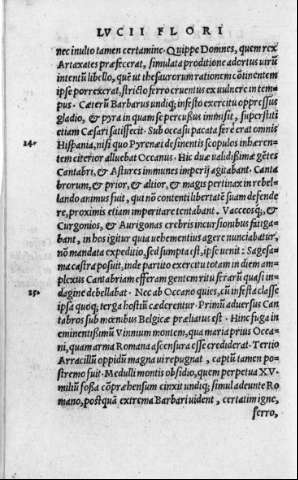 LVCII FLORI
nec inulto tamen certamine. Quippe Domnes, quem rex
Artaxates præfecerat, simulata proditione adortus uirū
intentū libello, quē ut thesaurorum rationem cōtinentem
ipse porrexerat, stricto ferro cruentus ex uulnere in tem=
pus. Cæterū Barbarus undiq; infesto exercitu oppressus
gladio, & pyra in quam se percussus immisit, superstiti
etiam Cæsari satisfecit. Sub occasu pacata fere erat omnis
24. Hispania, nisi quo Pyrenæi desinentis scopulos inhæren=
tem citerior alluebat Oceanus. Hic duæ ualidissimæ gētes
Cantabri, & Astures immunes imperij agitabant. Canta
brorum, & prior, & altior, & magis pertinax in rebel=
lando animus fuit, qui nō contenti libertatē suam defende
re, proximis etiam imperitare tentabant. Vacceosq;, &
Curgonios, & Aurigonas crebris incursionibus fatiga=
bant, in hos igitur quia uehementius agere nunciabatur,
nō mandata expeditio, sed sumpta est, ipse uenit: Segesa=
ma castra posuit, inde partito exercitu totam in diem am=
plexus Cantabriam efferam gentem ritu ferarū quasi in=
25. dagine debellabat. Nec ab Oceano quies, cū infesta classe
ipsa quoq; terga hostiū cæderentur. Primū aduersus Can
tabros sub mœnibus Belgicæ præliatus est. Hinc fuga in
eminentissimū Vinnum montem, quā maria prius Ocea=
ni, quam arma Romana ascensura esse crediderat. Tertio
Arracillū oppidū magna ui repugnat, captū tamen po=
stremo fuit. Medulli montis obsidio, quem perpetua XV.
miliū fossa cōpræhensum cinxit undiq; simul adeunte Ro=
mano, postquā extrema Barbari uident, certatim igne,
ferro,